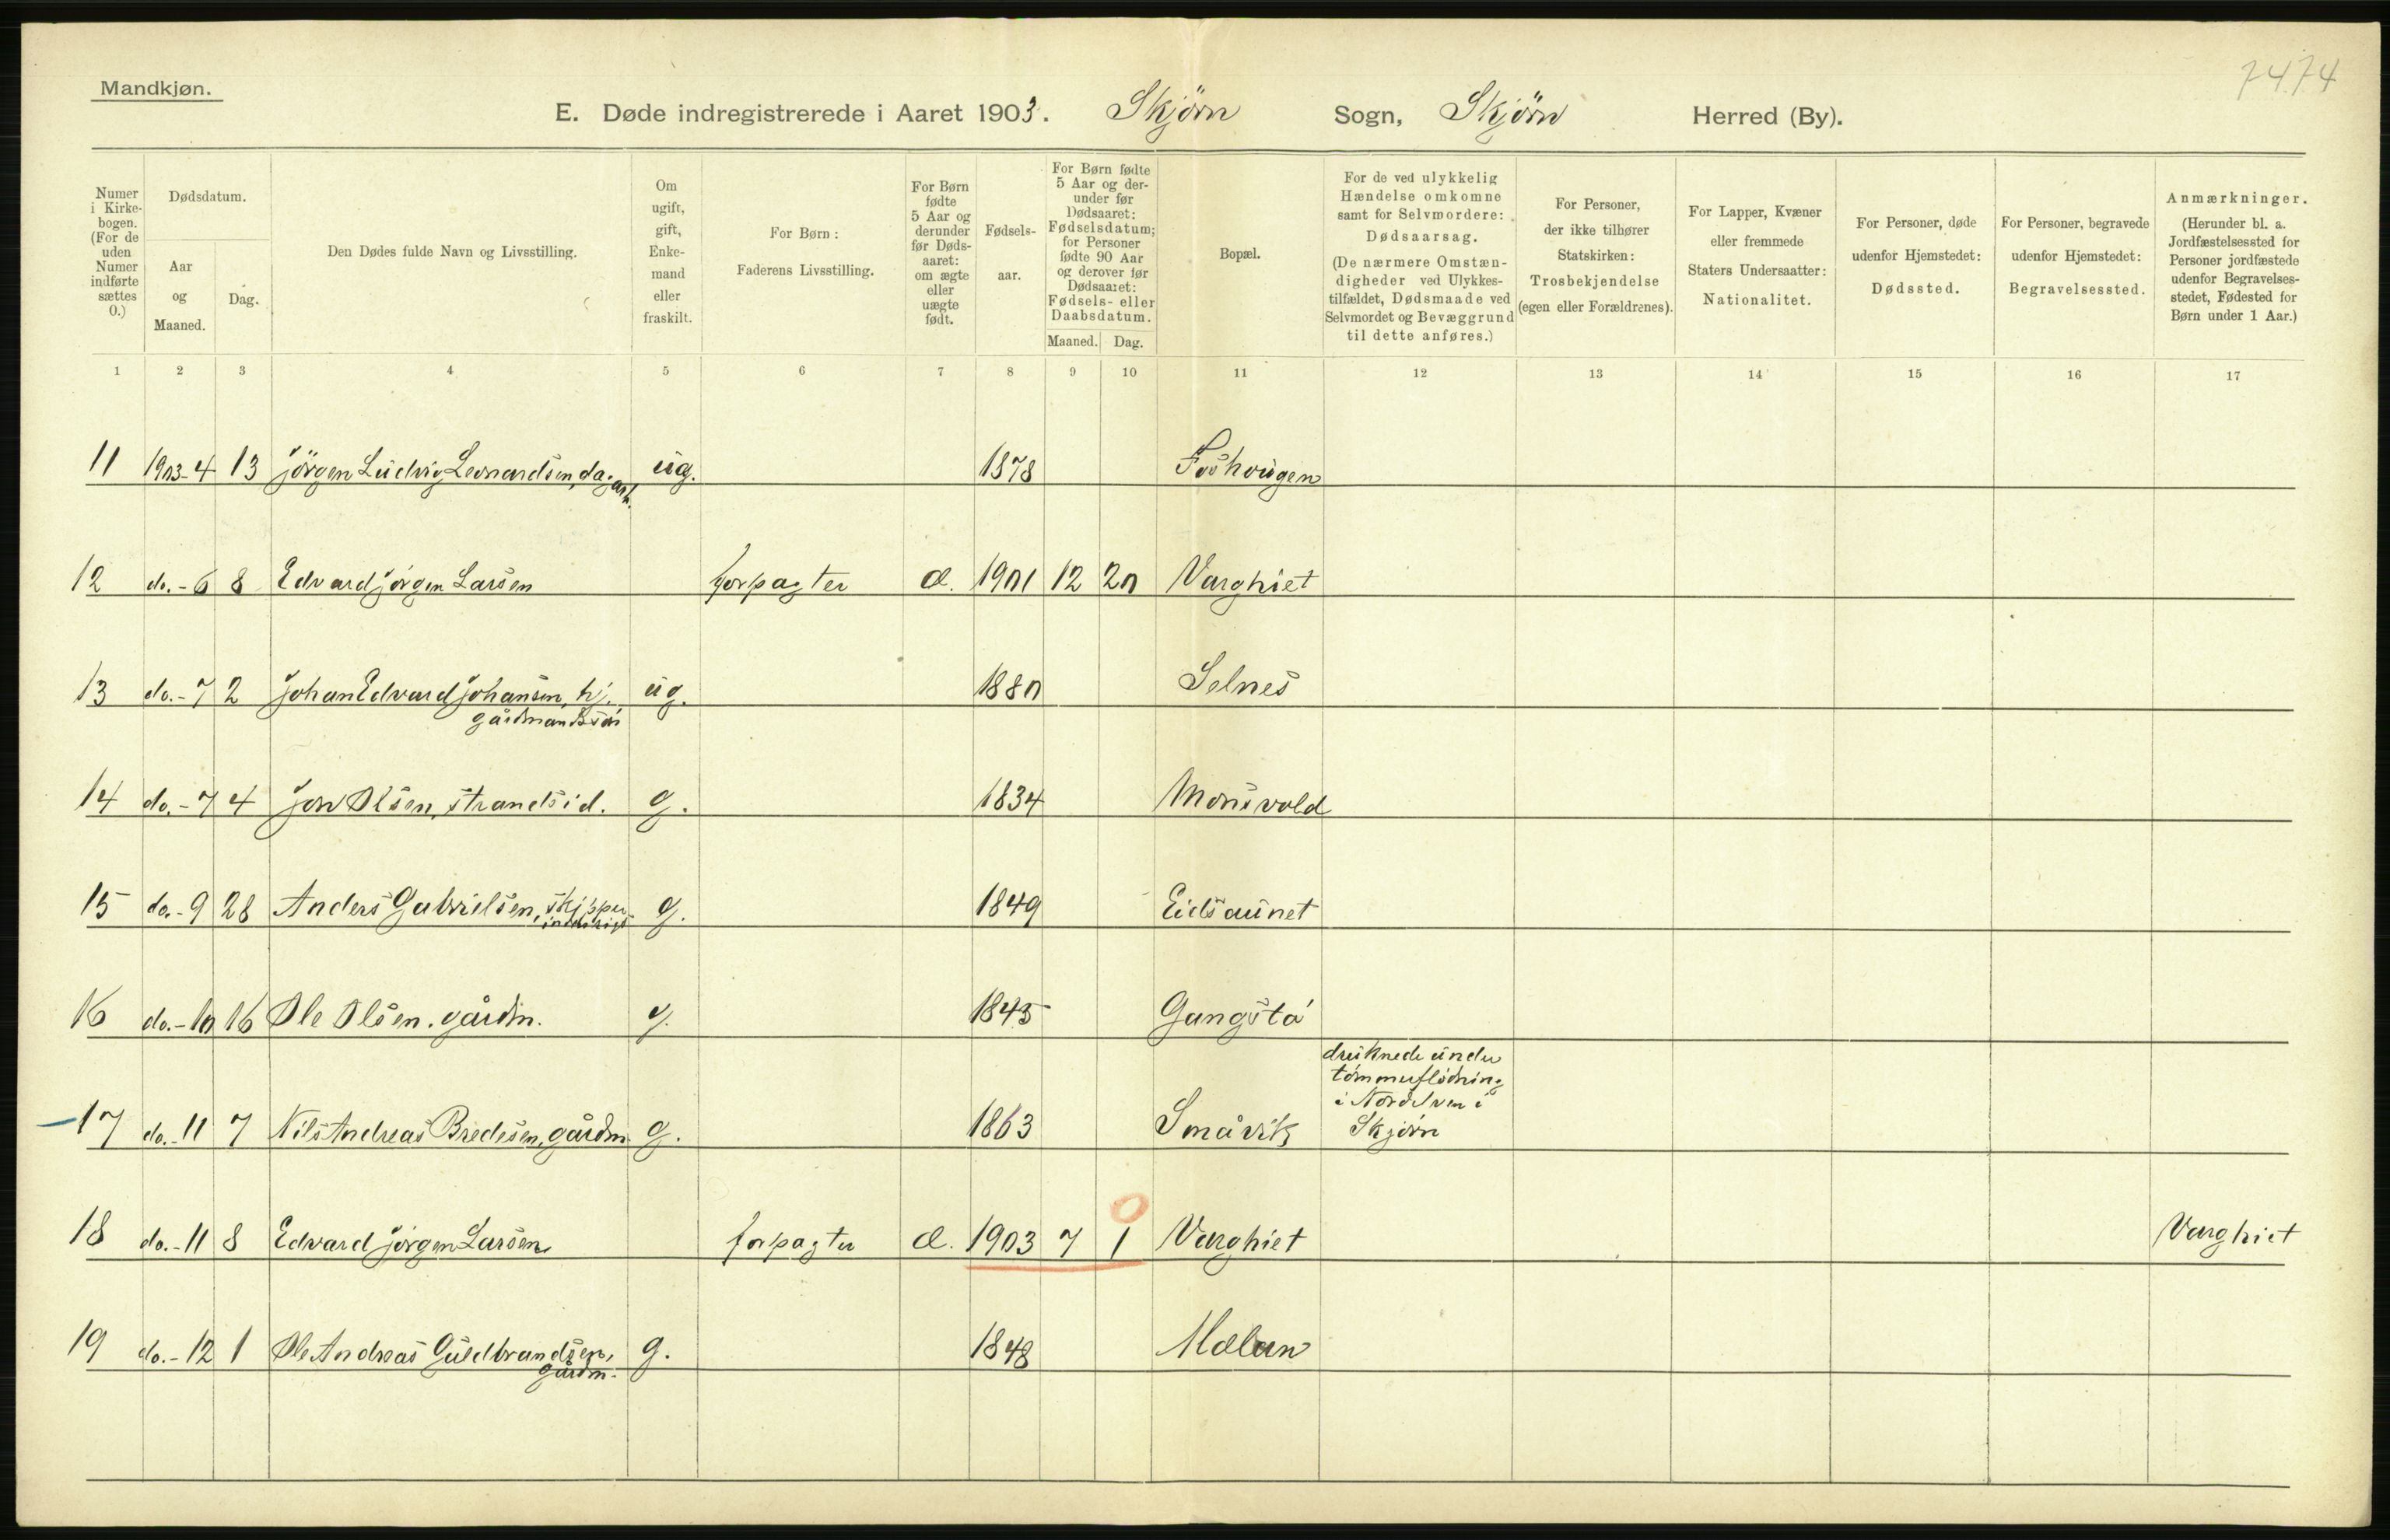 7474
Mandkjøn.
E. Døde indregistrerede i Aaret 1903. Skjörn Sogn, Skjörn Herred (By).
Numer i Kirke-bogen. (For de uden Numer indførte sættes 0.)
Dødsdatum.
Aar og Maaned.
Dag.
Den Dødes fulde Navn og Livsstilling.
Om ugift, gift, Enke-mand eller fraskilt.
For Børn: Faderens Livsstilling.
For Børn fødte 5 Aar og derunder før Døds-aaret: om ægte eller uægte født.
Fødsels-aar.
For Børn fødte 5 Aar og der-under før Dødsaaret: Fødselsdatum; for Personer fødte 90 Aar og derover før Dødsaaret: Fødsels- eller Daabsdatum.
Maaned. Dag.
Bopæl.
For de ved ulykkelig Hændelse omkomne samt for Selvmordere: Dødsaarsag. (De nærmere Omstæn-digheder ved Ulykkes-tilfældet, Dødsmaade ved Selvmordet og Bevæggrund til dette anføres.)
For Personer, der ikke tilhører Statskirken: Trosbekjendelse (egen eller Forældrenes).
For Lapper, Kvæner eller fremmede Staters Undersaatter: Nationalitet.
For Personer, døde udenfor Hjemstedet: Dødssted.
For Personer, begravede udenfor Hjemstedet: Begravelsessted.
Anmærkninger. (Herunder bl. a. Jordfæstelsessted for Personer jordfæstede udenfor Begravelses-stedet, Fødested for Børn under 1 Aar.)
1 2 3 4 5 6 7 8 9 10 11 12 13 14 15 16 17
11 1903-4 13 Jörgen Ludvig Leonardsen, dagarb. ug. 1878 Foshougen
12 do.-6 8 Edvard Jörgen Larsen forpagter æ. 1901 12 20 Varghiet
13 do.-7 2 Johan Edvard Johansen, hj. ug. 1880 Selnes
gårdmandssön
14 do.-7 4 Jon Olsen, strandsid. g. 1834 Monsvold
15 do.-9 28 Anders Gabrielsen, skipper g. 1849 Eidsaunet
16 do.-10 16 Ole Olsen, gårdm. g. 1845 Gangstö
druknede under
tömmerflödning
i Nordelven i
17 do.-11 7 Nils Andreas Bredesen, gårdm g. 1863 Småvik Skjörn
0
18 do.-11 8 Edvard Jörgen Larsen forpagter æ. 1903 7 1 Varghiet Varghiet
19 do.-12 1 Ole Andreas Guldbrandsen, g. 1848 Mælan
gårdm.